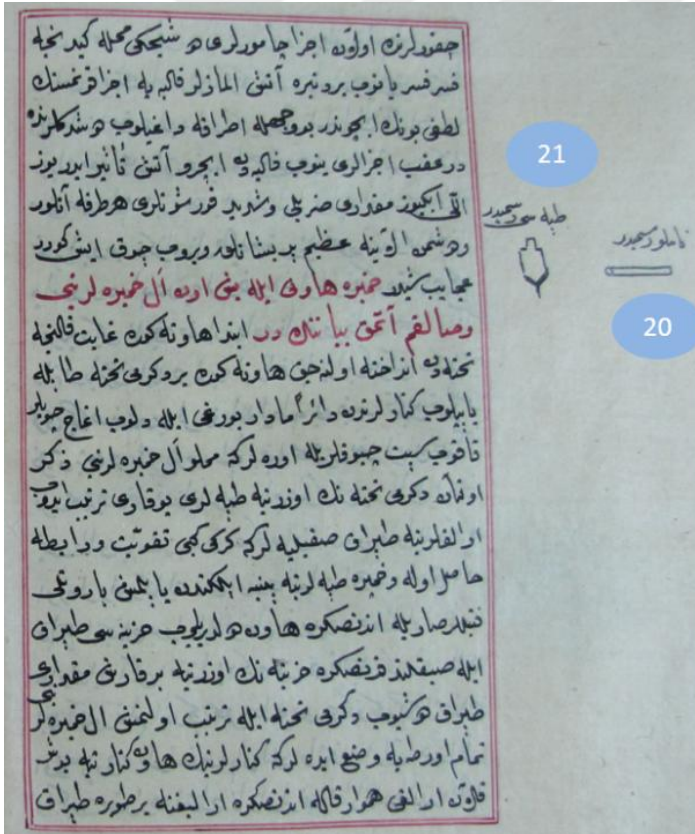 چقورلرنده اولان اجزا چامورلری و شیحکی محله کیدنجه
فسر فسر یانوب برو نیره آتش المازلر قالبه اجزا قونمسنك
لطفی بونك ایچوندر بو وجهله اطرافه داغیلوب دوشدکلرنده
در عقب اجزالری ینوب قالبدن ایچرو آتش تأثیر ایدر یوز
الی ایکیوز مقداری ضربلی وشدید قورشونلری هر طرفه آتلور
ودشمن الاینه عظیم پریشانلق ویروب چوق ایش کورر
عجایب شیدر خمبره هاونی ایله یتمش اوده ال خمبره لرینی
وصالقم آتمق بیاننده در ابتدا هاونه کوره غایت قالنجه
تخته دن انداخته اوله جق هاونه کوره بر دکرمی تخته طابله
یاپیلوب کنارلرنده دائرا مادار بورغی ایله دلوب اغاج چوبلر
قاقوب سپت چبوقلریله اوره لر که مملو ال خمبره لرینی ذکر
اولنان دکرمی تخته نك اوزرینه طپه لری یوقاری ترتیب ایدوب
ارالقلرینه طپراق صقیلیه لر که کرکی کبی تقویت ورابطه
حاصل اوله وخمبره طپه لرینه پنبه ایپلکندن یاپلمش باروتلی
فتیللر صاریله اندنصکره هاون دولدریلوب خزینه سی طپراق
ایله صیقلندقدنصکره خزینه نك اوزرینه بر قارش مقداری
طپراق دوشیوب دکرمی تخته ایله ترتیب اولنمش ال خمبره لر
تمام اورطه یه وضع ایده لر که کنارلرینك هاون کنارینه برند
قلان ارالغی هموار قاله اندنصکره ارالیغنه بر طوره طپراق
طپه سی رسمیدر
ناملو رسمیدر
21
20